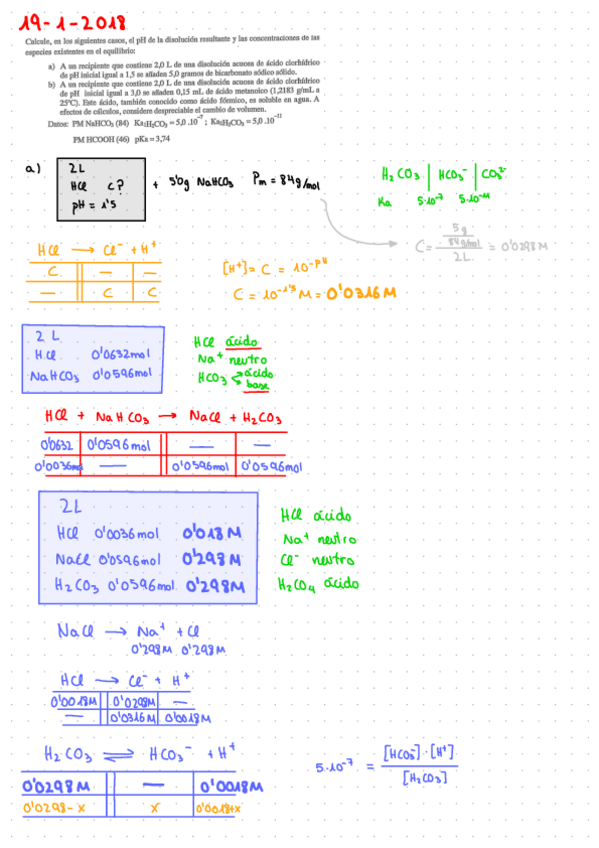 19-1-2018
Calcule, en los siguientes casos, el pH de la disolución resultante y las concentraciones de las
especies existentes en el equilibrio:
a) A un recipiente que contiene 2,0 L de una disolución acuosa de ácido clorhídrico
de pH inicial igual a 1,5 se añaden 5,0 gramos de bicarbonato sódico sólido.
b) A un recipiente que contiene 2,0 L de una disolución acuosa de ácido clorhídrico
de pH inicial igual a 3,0 se añaden 0,15 mL de ácido metanoico (1,2183 g/mL a
25ºC). Este ácido, también conocido como ácido fórmico, es soluble en agua. A
efectos de cálculos, considere despreciable el cambio de volumen.
Datos: PM NaHCO₃ (84) Ka₁H₂CO₃ = 5,0 .10⁻⁷ ; Ka₂H₂CO₃ = 5,0 .10⁻¹¹
PM HCOOH (46) pKa = 3,74
a) 2L
HCl C?
pH = 1'5
+ 5'0g NaHCO₃ Pm = 84g/mol
H₂CO₃ | HCO₃⁻ | CO₃²⁻
Ka 5·10⁻⁷ 5·10⁻¹¹
C = 5g / 84g/mol / 2L = 0'0298M
HCl → Cl⁻ + H⁺
C — —
— C C
[H⁺] = C = 10^-pH
C = 10^-1'5 M = 0'0316M
2 L
HCl 0'0632mol
NaHCO₃ 0'0596mol
HCl ácido
Na⁺ neutro
HCO₃ ácido
base
HCl + NaHCO₃ → NaCl + H₂CO₃
0'0632 0'0596mol — —
0'0036mol — 0'0596mol 0'0596mol
2L
HCl 0'0036mol 0'018M
NaCl 0'0596mol 0'298M
H₂CO₃ 0'0596mol 0'298M
HCl ácido
Na⁺ neutro
Cl⁻ neutro
H₂CO₄ ácido
NaCl → Na⁺ + Cl
0'298M 0'298M
HCl → Cl⁻ + H⁺
0'0018M 0'0298M —
— 0'0316M 0'0018M
H₂CO₃ ⇌ HCO₃⁻ + H⁺
0'0298M — 0'0018M
0'0298-x x 0'0018+x
5·10⁻⁷ = [HCO₃⁻]·[H⁺] / [H₂CO₃]